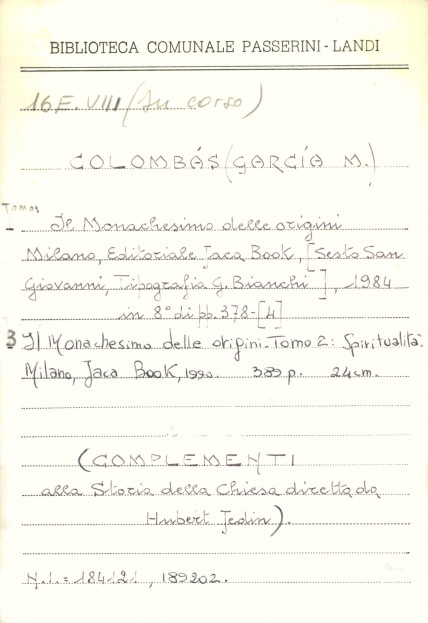 BIBLIOTECA COMUNALE PASSERINI-LANDI
16 E. VIII (In corso)
COLOMBÁS (GARCÍA M.)
Tomos
Il Monachesimo delle origini
Milano, Editoriale Jaca Book, [Sesto San
Giovanni, Tipografia G. Bianchi], 1984
in 8° di pp. 378-[4]
3 Il Monachesimo delle origini. Tomo 2: Spiritualità.
Milano, Jaca Book, 1990. 389 p. 24 cm.
(COMPLEMENTI
alla Storia della Chiesa diretta da
Hubert Jedin).
N.I.= 184121, 189202.